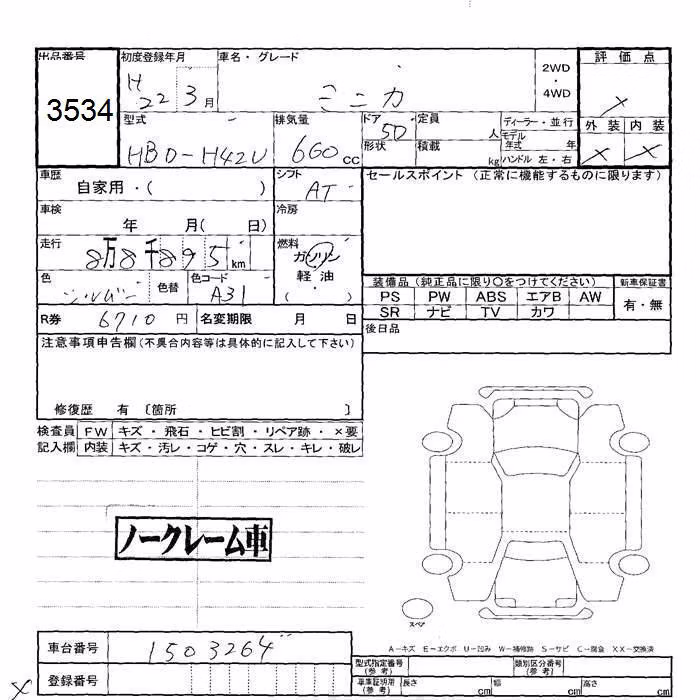 出品番号 初度登録年月 車名・グレード 評価点
3534 H 22 3月 ミニカ 2WD・4WD ×
型式 排気量 ドア 定員 ディーラー・並行 外装 内装
HBD-H42V 660cc 5D 人 モデル年式 年 × ×
形状 積載 kg ハンドル 左・右
車歴 シフト セールスポイント (正常に機能するものに限ります)
自家用・( ) AT
車検 冷房
年 月( 日)
走行 燃料
8万8千895km ガソリン
色 色替 色コード 軽油
シルバー A31 ( )
装備品 (純正品に限り○をつけてください) 新車保証書
PS PW ABS エアB AW 有・無
SR ナビ TV カワ
R券 6710円 名変期限 月 日
後日品
注意事項申告欄(不具合内容等は具体的に記入して下さい)
修復歴 有 〔箇所 〕
検査員 FW キズ・飛石・ヒビ割・リペア跡・×要
記入欄 内装 キズ・汚レ・コゲ・穴・スレ・キレ・破レ
ノークレーム車
スペア
A-キズ E-エクボ U-凹み W-補修跡 S-サビ C-腐食 XX-交換済
車台番号 1503264
型式指定番号(参考) 類別区分番号(参考)
× 登録番号
車庫証明用(参考) 長さ cm 幅 cm 高さ cm